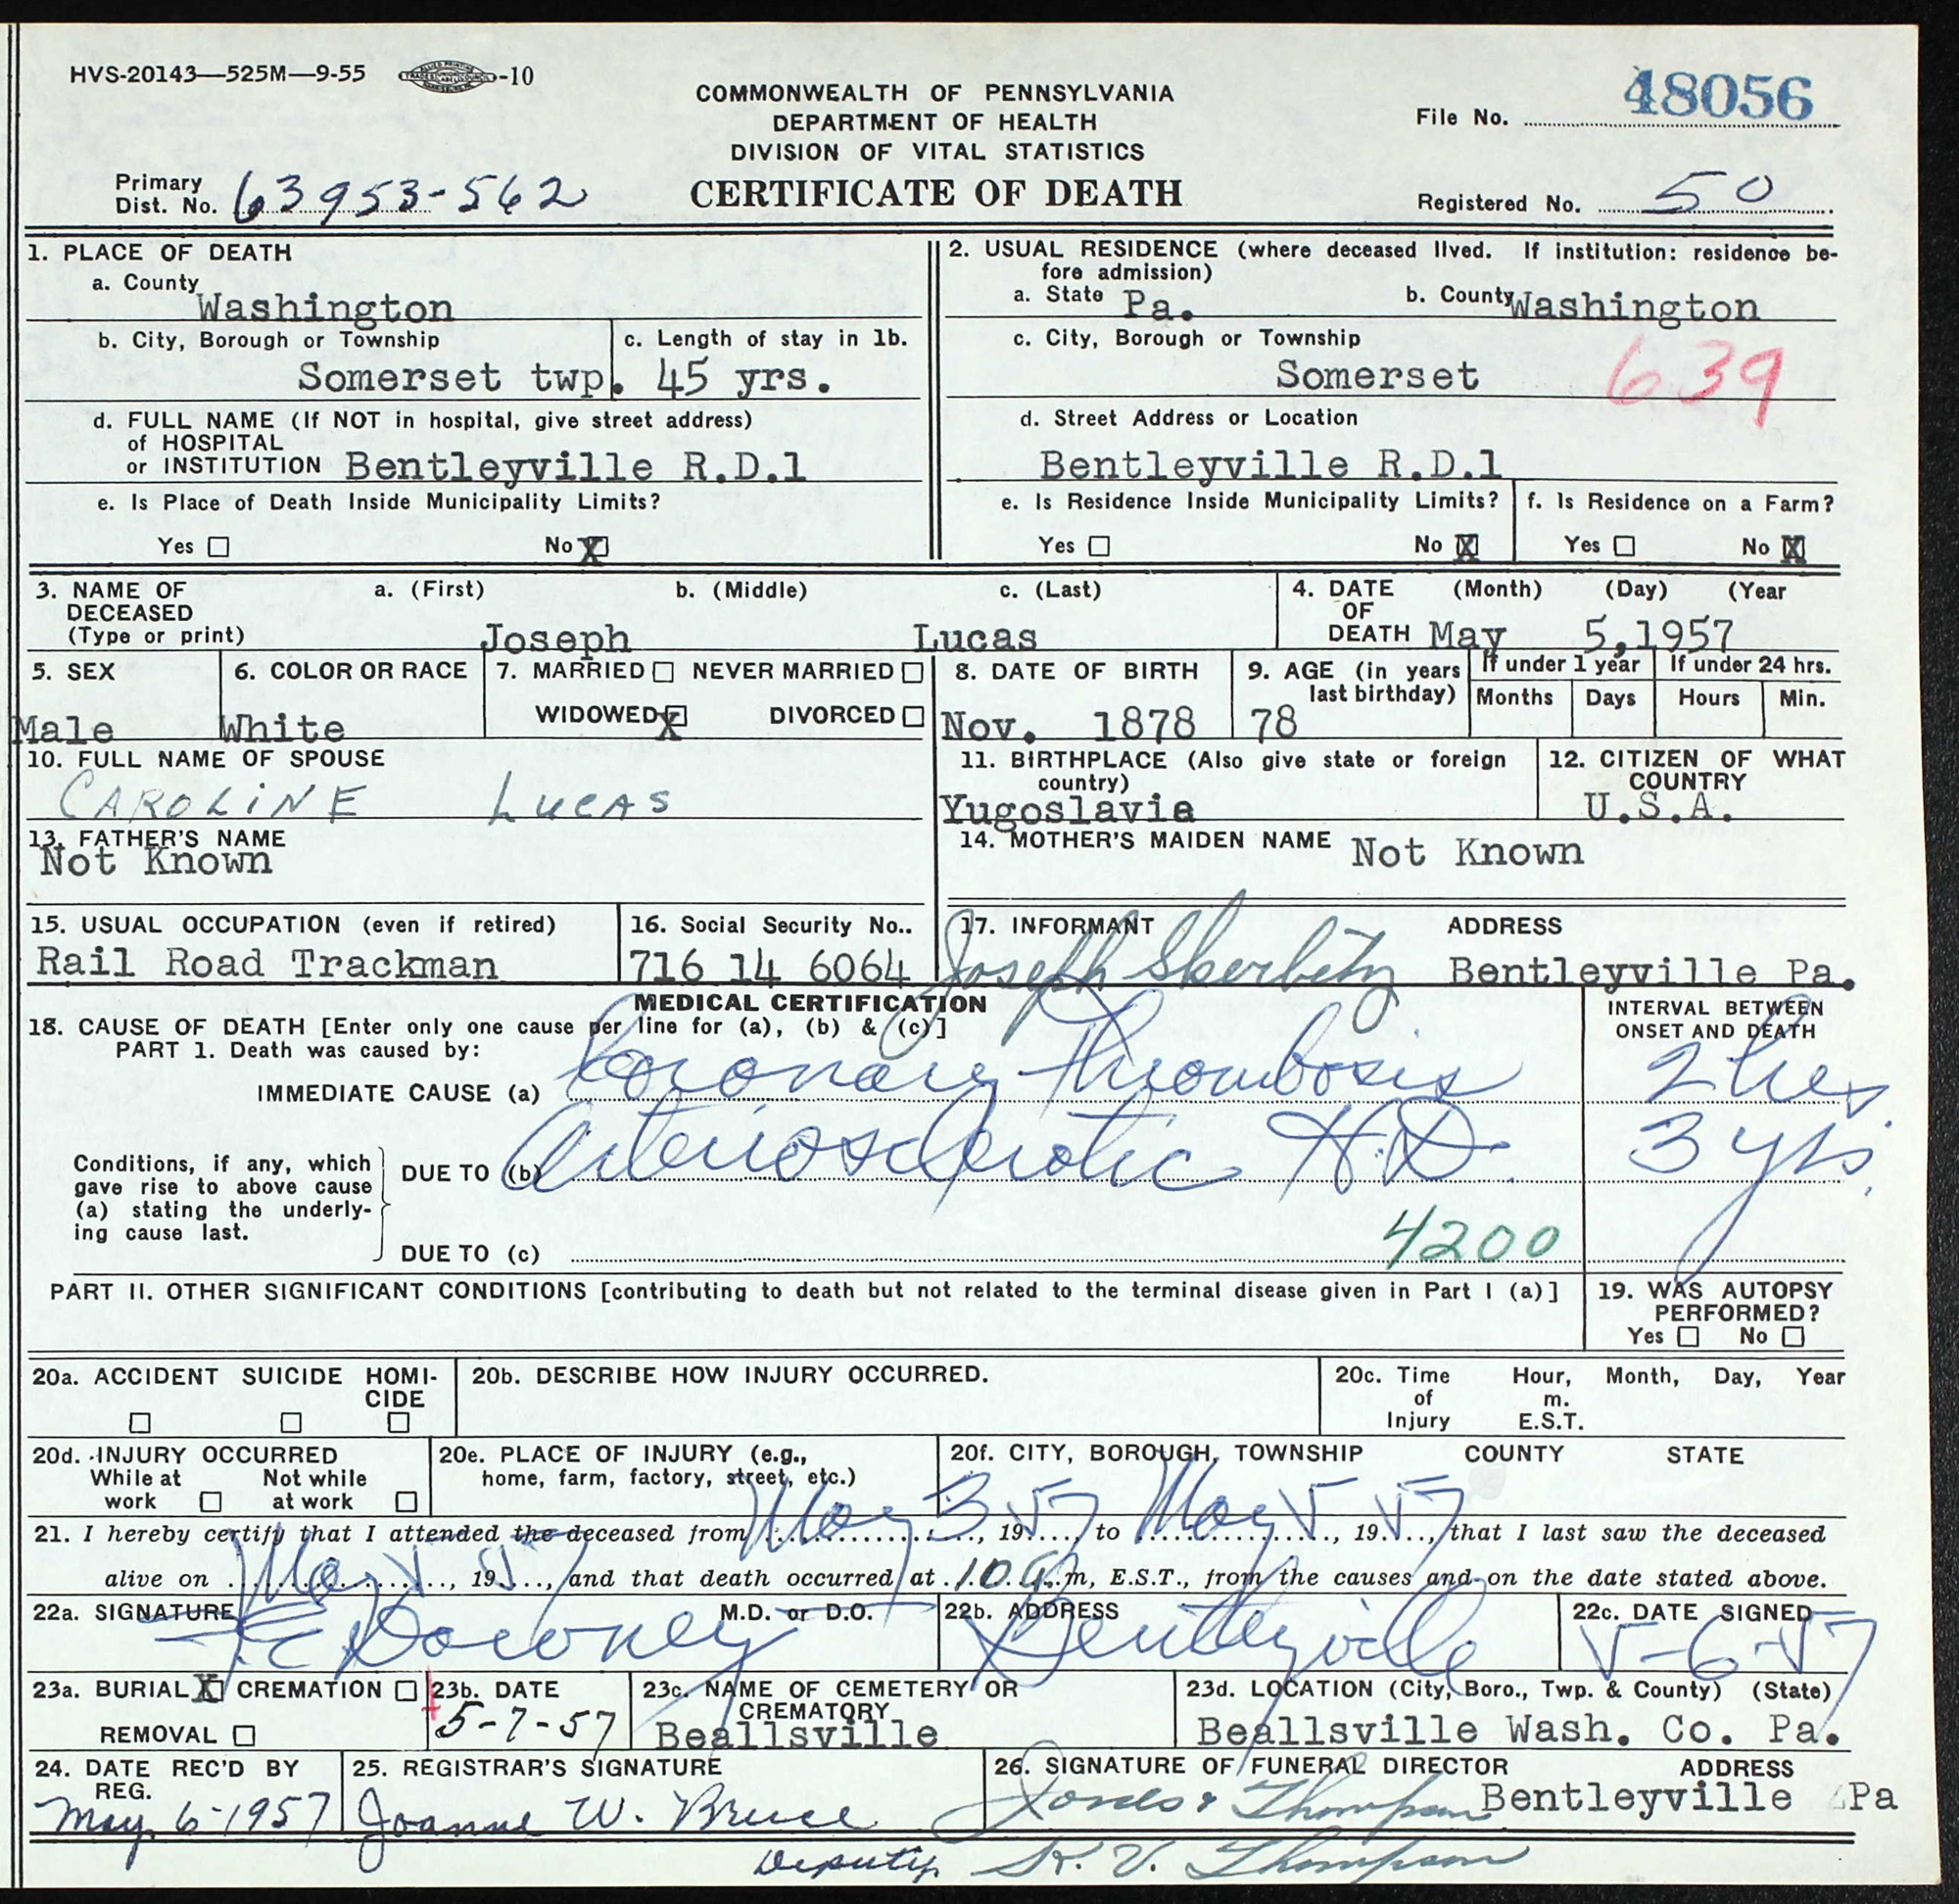 HVS-20143—525M—9-55 -10
COMMONWEALTH OF PENNSYLVANIA
DEPARTMENT OF HEALTH
DIVISION OF VITAL STATISTICS
CERTIFICATE OF DEATH
File No. 48056
Primary Dist. No. 63953-562
Registered No. 50
1. PLACE OF DEATH
a. County
Washington
b. City, Borough or Township
Somerset twp.
c. Length of stay in 1b.
45 yrs.
d. FULL NAME (If NOT in hospital, give street address)
of HOSPITAL
or INSTITUTION Bentleyville R.D.1
e. Is Place of Death Inside Municipality Limits?
Yes No X
2. USUAL RESIDENCE (where deceased lived. If institution: residence be-
fore admission)
a. State Pa. b. County Washington
c. City, Borough or Township
Somerset 639
d. Street Address or Location
Bentleyville R.D.1
e. Is Residence Inside Municipality Limits?
Yes No X
f. Is Residence on a Farm?
Yes No X
3. NAME OF DECEASED (Type or print)
a. (First) b. (Middle) c. (Last)
Joseph Lucas
4. DATE OF DEATH (Month) (Day) (Year
May 5,1957
5. SEX
Male
6. COLOR OR RACE
White
7. MARRIED NEVER MARRIED
WIDOWED X DIVORCED
8. DATE OF BIRTH
Nov. 1878
9. AGE (in years last birthday)
78
If under 1 year
Months Days
If under 24 hrs.
Hours Min.
10. FULL NAME OF SPOUSE
CAROLINE LUCAS
11. BIRTHPLACE (Also give state or foreign country)
Yugoslavia
12. CITIZEN OF WHAT COUNTRY
U.S.A.
13. FATHER'S NAME
Not Known
14. MOTHER'S MAIDEN NAME Not Known
15. USUAL OCCUPATION (even if retired)
Rail Road Trackman
16. Social Security No..
716 14 6064
17. INFORMANT ADDRESS
Joseph Bentleyville Pa.
MEDICAL CERTIFICATION
18. CAUSE OF DEATH [Enter only one cause per line for (a), (b) & (c)]
PART 1. Death was caused by:
INTERVAL BETWEEN ONSET AND DEATH
IMMEDIATE CAUSE (a) Coronary Thrombosis 2 hrs
Conditions, if any, which
gave rise to above cause
(a) stating the underly-
ing cause last.
DUE TO (b) Arteriosclerotic H.D. 3 yrs.
DUE TO (c) 4200
PART II. OTHER SIGNIFICANT CONDITIONS [contributing to death but not related to the terminal disease given in Part I (a)]
19. WAS AUTOPSY PERFORMED?
Yes No
20a. ACCIDENT SUICIDE HOMI-
CIDE
20b. DESCRIBE HOW INJURY OCCURRED.
20c. Time of Injury Hour, m. E.S.T. Month, Day, Year
20d. INJURY OCCURRED
While at work Not while at work
20e. PLACE OF INJURY (e.g.,
home, farm, factory, street, etc.)
20f. CITY, BOROUGH, TOWNSHIP COUNTY STATE
21. I hereby certify that I attended the deceased from May 3, 1957, to May 5, 1957, that I last saw the deceased
alive on May 5, 1957, and that death occurred at 10 a.m, E.S.T., from the causes and on the date stated above.
22a. SIGNATURE M.D. or D.O.
Downey
22b. ADDRESS
Bentleyville
22c. DATE SIGNED
5-6-57
23a. BURIAL X CREMATION
REMOVAL
23b. DATE
5-7-57
23c. NAME OF CEMETERY OR CREMATORY
Beallsville
23d. LOCATION (City, Boro., Twp. & County) (State)
Beallsville Wash. Co. Pa.
24. DATE REC'D BY REG.
May 6-1957
25. REGISTRAR'S SIGNATURE
Joanne W. Bruce
Deputy
26. SIGNATURE OF FUNERAL DIRECTOR ADDRESS
& Thompson Bentleyville Pa
K. V. Thompson